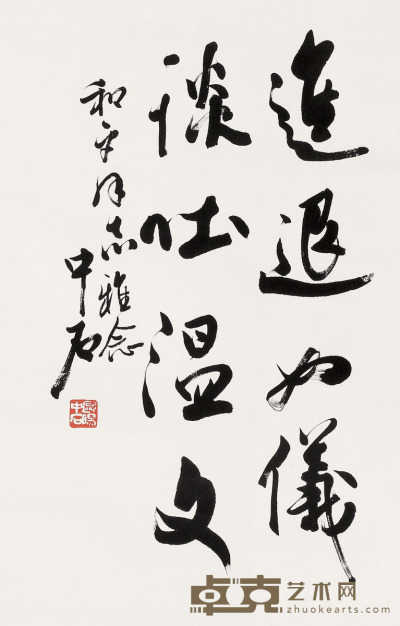 進退如儀
談吐温文
和平同志雅念
中石
卓克艺术网
zhuokearts.com